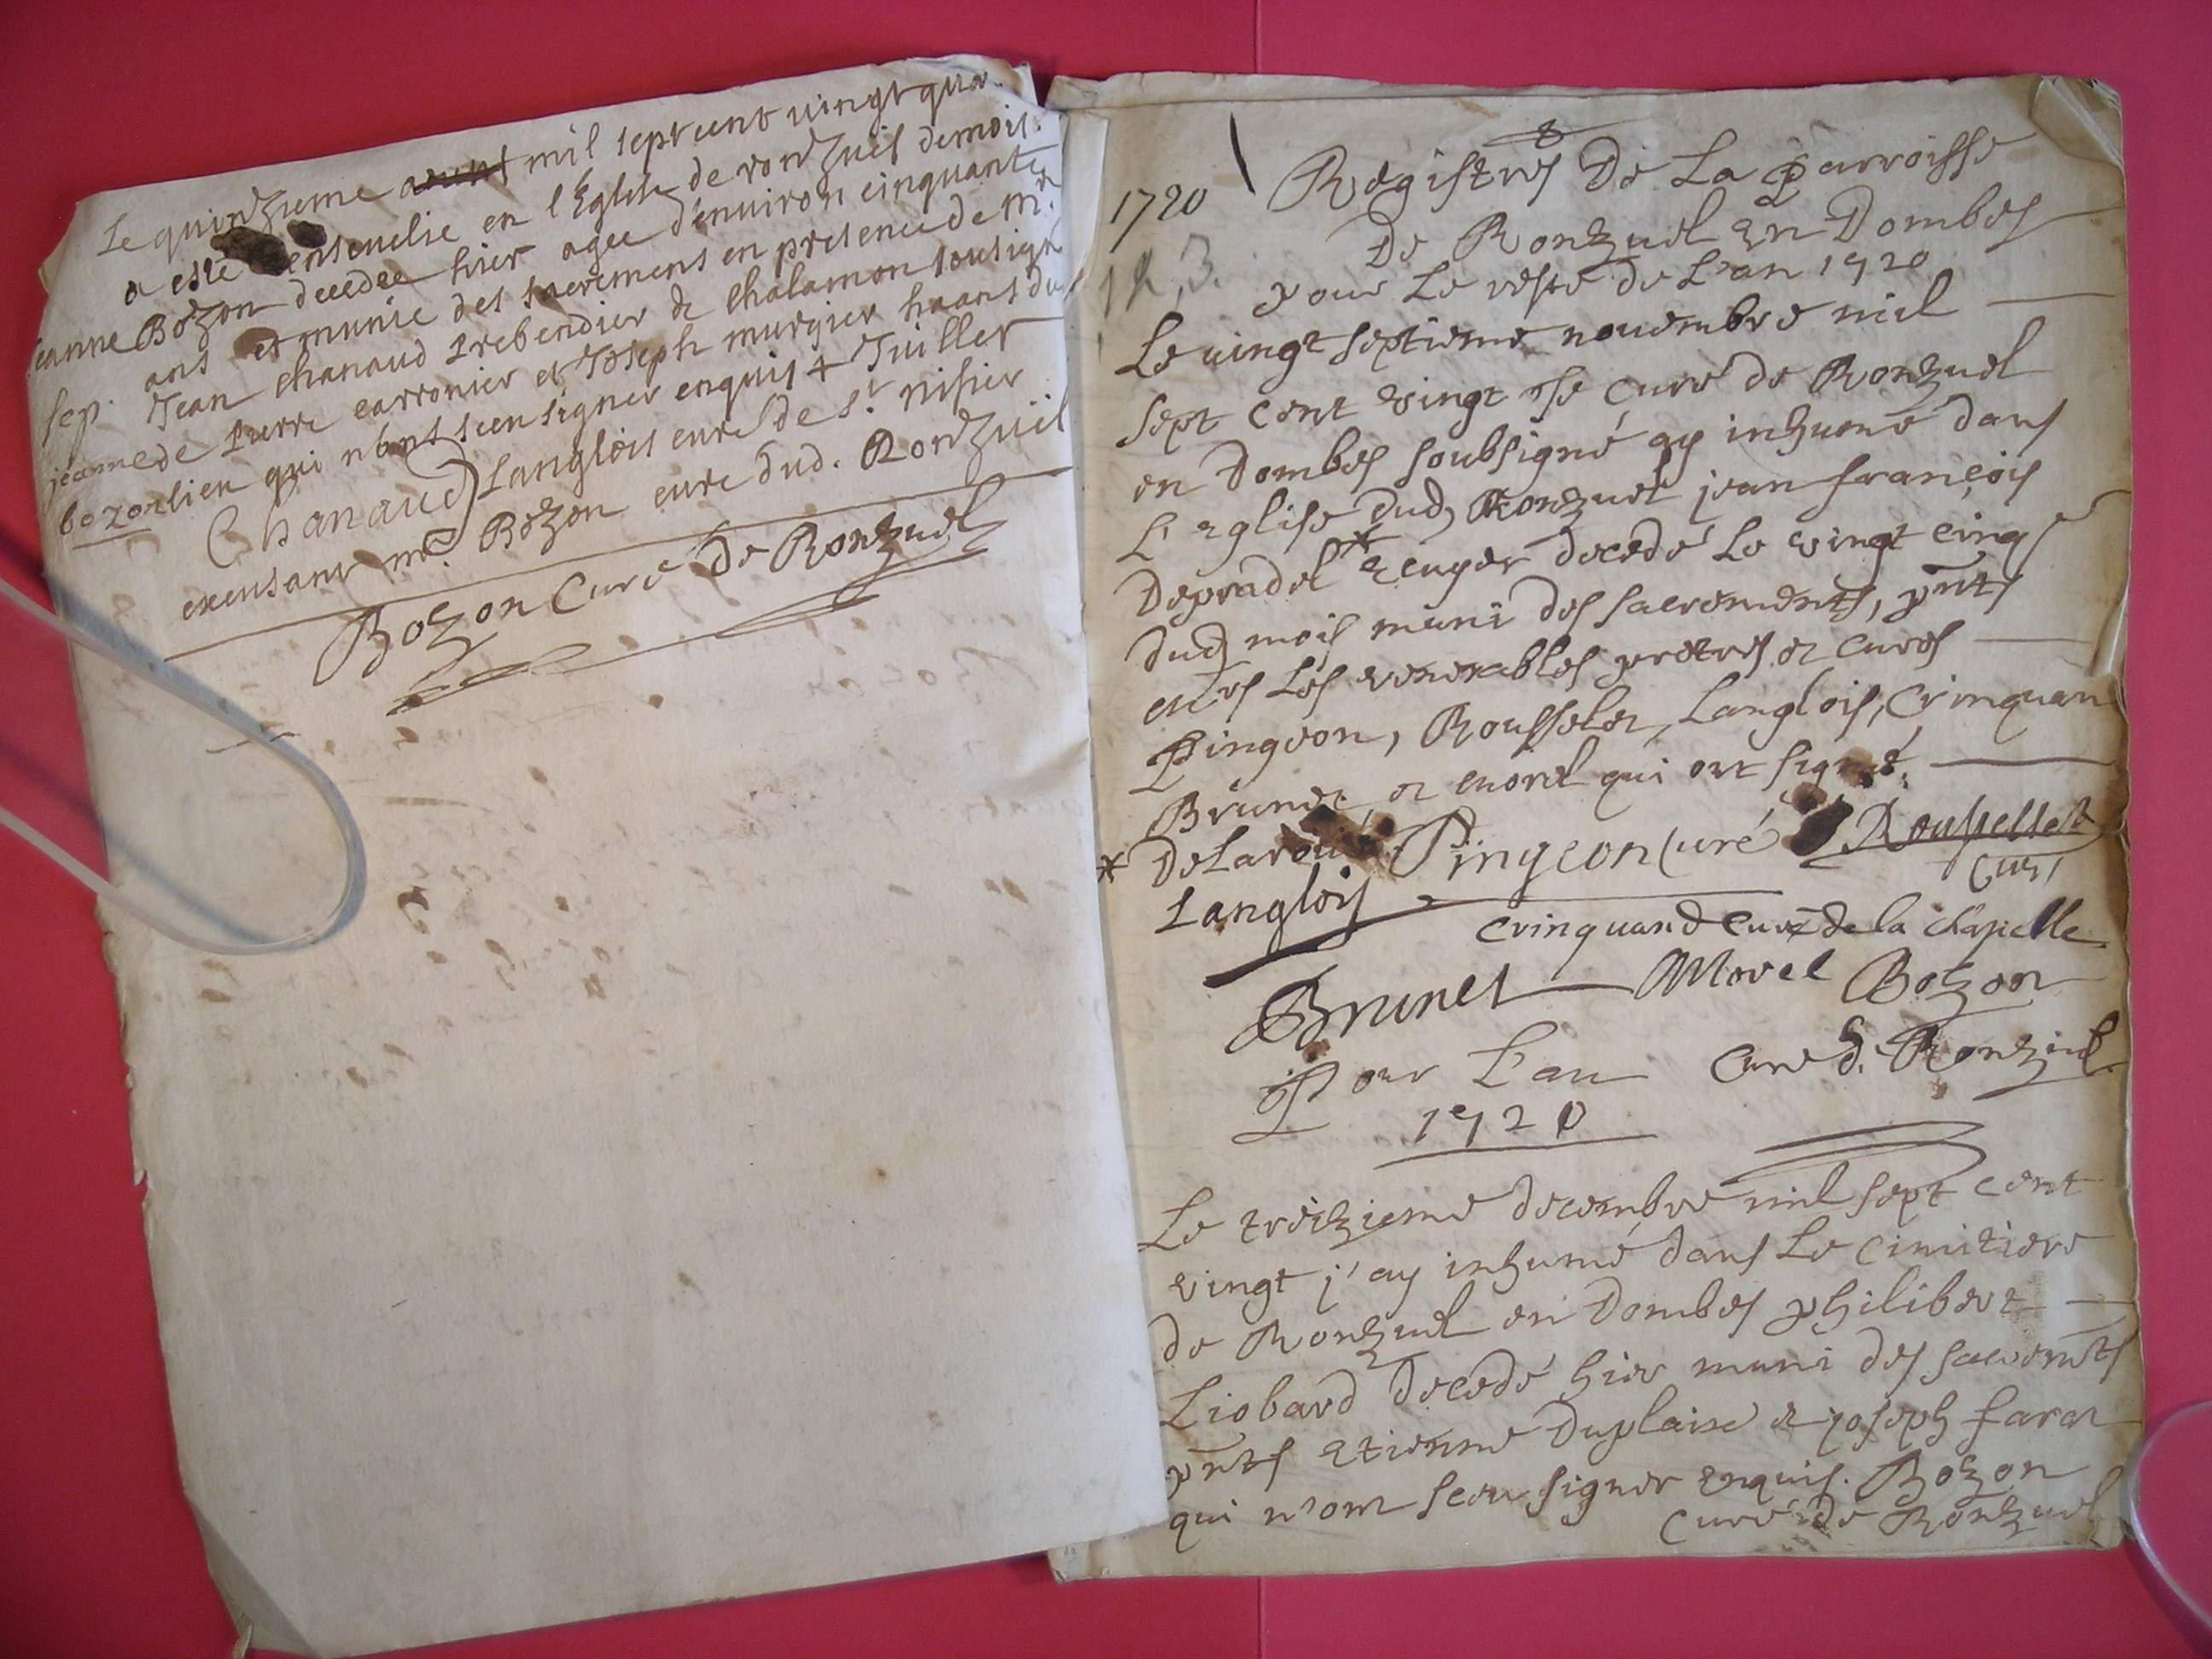 Le quinzieme aoust mil sept cent vingt qua.
a esté ensevelie en l'Eglise de ronzuel demois.
jeanne Bozon decedee hier agee d'environ cinquante
sep. ans et munie des sacremens en presence de Mr.
Jean chanaud prebendier de chalamon sousigné
jeanne de pierre carronier et Joseph murgier haans du
bozon lieu qui n'ont sceu signer enquis + Juillet
Chanaud Langlois curé de st. nisier
excusant mre. Bozon curé dud. Ronzuel
Bozon Curé de Ronzuel
1720
Registres De La parroisse
De Ronzuel En Dombes
pour Le reste de L'an 1720
Le vingt septieme novembre mil
sept cent vingt Je curé de Ronzuel
en Dombes soubsigné ay inhumé dans
L'eglise dud. Ronzuel jean françois
Depradel * Ecuyer decedé Le vingt cinq
dud. mois muni des sacrements, pnts
Les venerables pretres et curés
Pingeon, Rousselet, Langlois, Crinquan
Brunet et morel qui ont signé.
* DeLarou Pingeon Curé Rousselet
curé
Langlois
Crinquand Curé de la chapelle
Brunet Morel Bozon
Pour L'an Curé d. Ronzuel
1720
Le treizieme decembre mil sept cent
vingt j'ay inhumé dans Le cimitiere
de Ronzuel en Dombes philibert
Liobard decedé hier muni des sacremts
pnts Etienne Duplaix et joseph farat
qui n'ont sceu signer enquis. Bozon
curé de Ronzuel